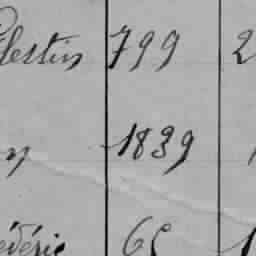 lestin 799 2
1839
édéric 65 1